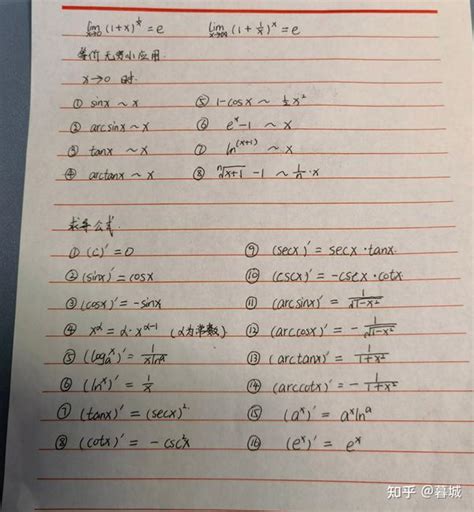 lim x→0 (1+x)^{1/x} = e    lim x→∞ (1+1/x)^x = e
等价无穷小应用.
x→0 时.
① sinx ~ x    ⑤ 1-cosx ~ ½x²
② arcsinx ~ x    ⑥ e^x-1 ~ x
③ tanx ~ x    ⑦ ln^(x+1) ~ x
④ arctanx ~ x    ⑧ ⁿ√(x+1) - 1 ~ 1/n·x
求导公式.
① (c)' = 0    ⑨ (secx)' = secx·tanx.
② (sinx)' = cosx    ⑩ (cscx)' = -cscx·cotx
③ (cosx)' = -sinx    ⑪ (arcsinx)' = 1/√(1-x²)
④ x^α = α·x^{α-1} (α为常数)    ⑫ (arccosx)' = -1/√(1-x²)
⑤ (log_a^x)' = 1/(xln^a)    ⑬ (arctanx)' = 1/(1+x²)
⑥ (ln^x)' = 1/x    ⑭ (arccotx)' = -1/(1+x²)
⑦ (tanx)' = (secx)².    ⑮ (a^x)' = a^x ln^a
⑧ (cotx)' = -csc²x    ⑯ (e^x)' = e^x
知乎 @暮城